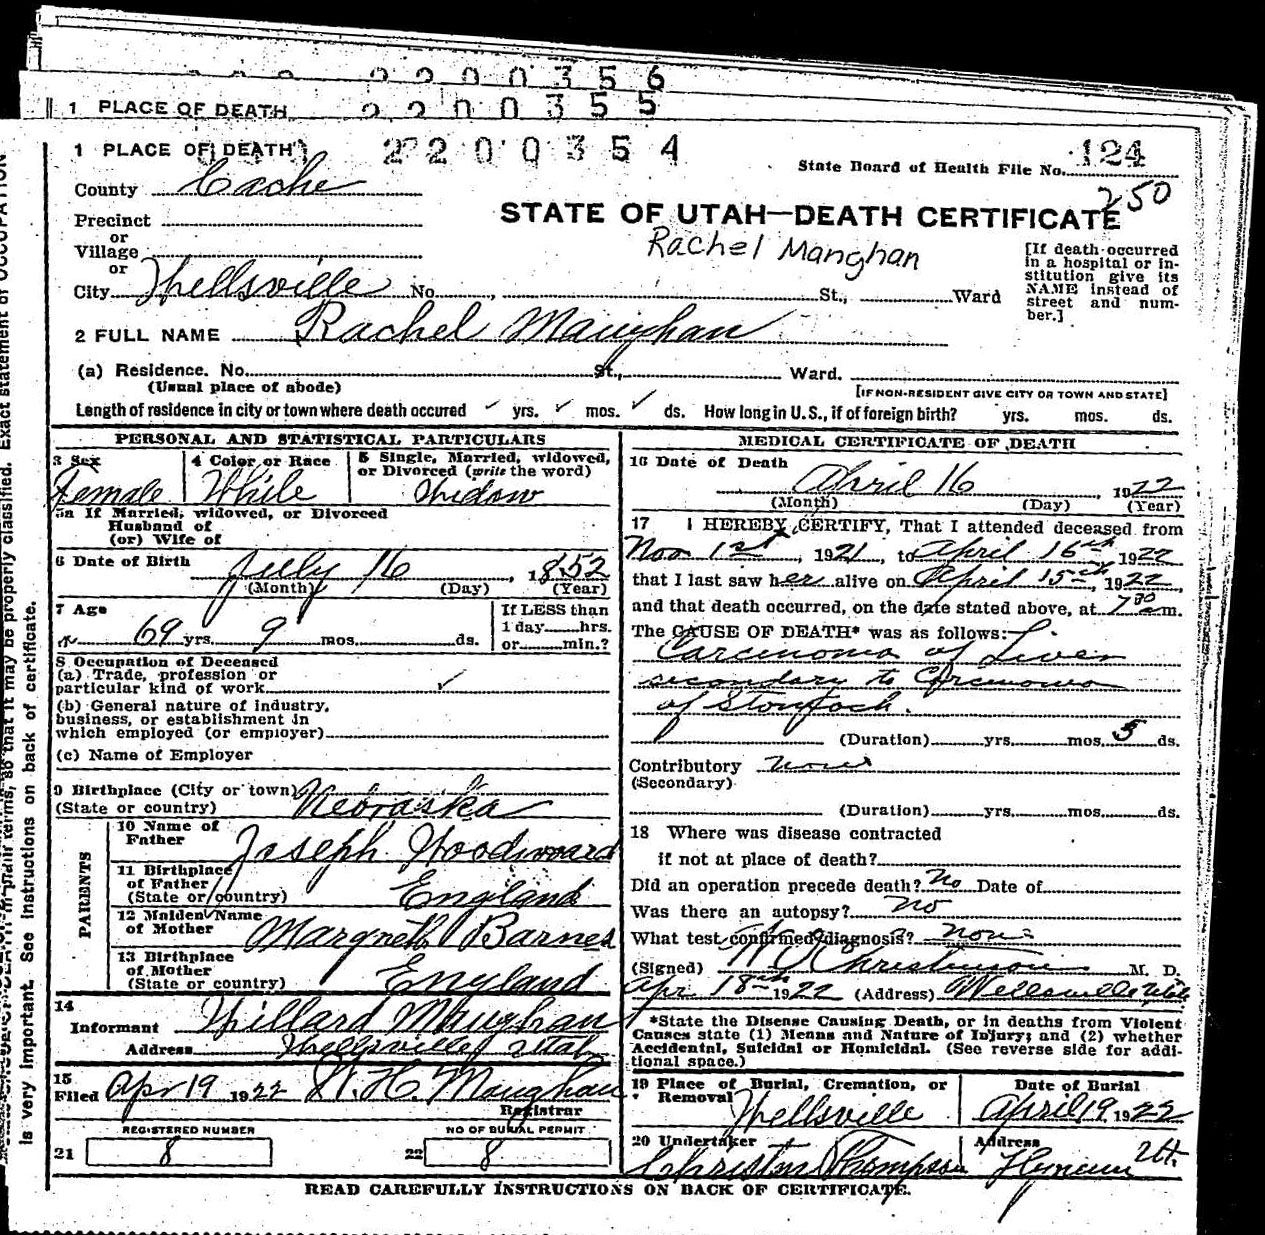 2200356
1 PLACE OF DEATH 2200355
1 PLACE OF DEATH 2200354
State Board of Health File No. 124
250
County Cache
STATE OF UTAH—DEATH CERTIFICATE
Rachel Manghan
Precinct
or
Village
or
City Wellsville No. , St., Ward
[If death occurred
in a hospital or in-
stitution give its
NAME instead of
street and num-
ber.]
2 FULL NAME Rachel Maughan
(a) Residence. No. St., Ward.
(Usual place of abode)
[IF NON-RESIDENT GIVE CITY OR TOWN AND STATE]
Length of residence in city or town where death occured ✓ yrs. ✓ mos. ✓ ds. How long in U.S., if of foreign birth? yrs. mos. ds.
PERSONAL AND STATISTICAL PARTICULARS
3 Sex
Female
4 Color or Race
White
5 Single, Married, widowed,
or Divorced (write the word)
Widow
5a If Married, widowed, or Divorced
Husband of
(or) Wife of
6 Date of Birth July 16, 1852
(Month) (Day) (Year)
7 Age
69 yrs. 9 mos. ds.
If LESS than
1 day hrs.
or min.?
8 Occupation of Deceased
(a) Trade, profession or
particular kind of work ✓
(b) General nature of industry,
business, or establishment in
which employed (or employer)
(c) Name of Employer
9 Birthplace (City or town)
(State or country) Nebraska
PARENTS
10 Name of
Father Joseph Woodward
11 Birthplace
of Father
(State or country) England
12 Maiden Name
of Mother Margret Barnes
13 Birthplace
of Mother
(State or country) England
14
Informant Willard Maughan
Address Wellsville Utah
15
Filed Apr 19 1922 W. H. Maughan
Registrar
REGISTERED NUMBER
21 8
NO OF BURIAL PERMIT
22 8
MEDICAL CERTIFICATE OF DEATH
16 Date of Death
April 16, 1922
(Month) (Day) (Year)
17 I HEREBY CERTIFY, That I attended deceased from
Nov 1st, 1921, to April 16th 1922
that I last saw her alive on April 15th, 1922,
and that death occurred, on the date stated above, at 7 30 a m.
The CAUSE OF DEATH* was as follows:
Carcinoma of Liver
secondary to Carcinoma
of Stomach.
(Duration) yrs. mos. 5 ds.
Contributory none
(Secondary)
(Duration) yrs. mos. ds.
18 Where was disease contracted
if not at place of death?
Did an operation precede death? No Date of
Was there an autopsy? No
What test confirmed diagnosis? None
(Signed) Christenson M. D.
Apr 18th 1922 (Address) Wellsville Utah
*State the Disease Causing Death, or in deaths from Violent
Causes state (1) Means and Nature of Injury; and (2) whether
Accidental, Suicidal or Homicidal. (See reverse side for addi-
tional space.)
19 Place of Burial, Cremation, or
Removal
Wellsville
Date of Burial
April 19 1922
20 Undertaker
Thompson
Address
Hyrum Ut.
READ CAREFULLY INSTRUCTIONS ON BACK OF CERTIFICATE.
so that it may be properly classified. Exact statement of OCCUPATION
is very important. See instructions on back of certificate.